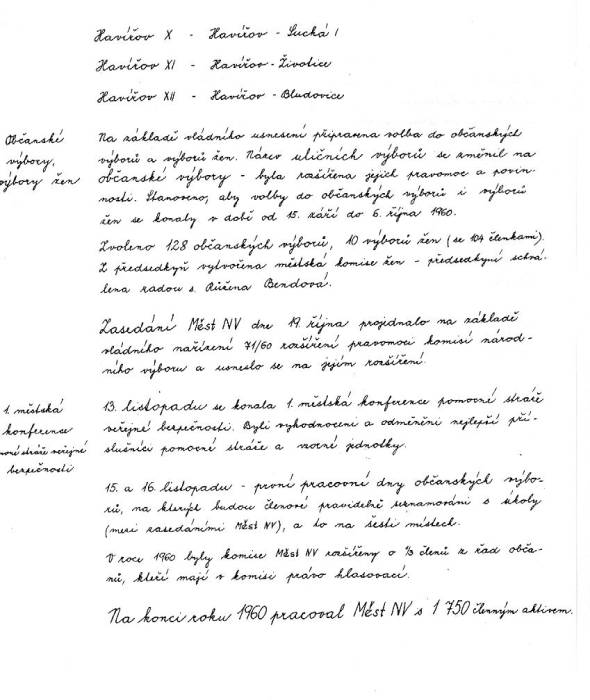 Havířov X - Havířov - Suchá I
Havířov XI - Havířov - Životice
Havířov XII - Havířov - Bludovice
Občanské
výbory,
výbory žen
Na základě vládního usnesení připravena volba do občanských
výborů a výborů žen. Název uličních výborů se změnil na
občanské výbory - byla rozšířena jejich pravomoc a povin-
nosti. Stanoveno, aby volby do občanských výborů i výborů
žen se konaly v době od 15. září do 6. října 1960.
Zvoleno 128 občanských výborů, 10 výborů žen (se 104 členkami).
Z předsedkyň vytvořena městská komise žen - předsedkyní schvá-
lena radou s. Růžena Bendová.
Zasedání Měst NV dne 19. října projednalo na základě
vládního nařízení 71/60 rozšíření pravomoci komisí národ-
ního výboru a usneslo se na jejím rozšíření.
1. městská
konference
pomocné stráže veřejné
bezpečnosti
13. listopadu se konala 1. městská konference pomocné stráže
veřejné bezpečnosti. Byli vyhodnoceni a odměněni nejlepší pří-
slušníci pomocné stráže a vzorné jednotky.
15. a 16. listopadu - první pracovní dny občanských výbo-
rů, na kterých budou členové pravidelně seznamováni s úkoly
(mezi zasedáními Měst NV), a to na šesti místech.
V roce 1960 byly komise Měst NV rozšířeny o ⅓ členů z řad obča-
nů, kteří mají v komisi právo hlasovací.
Na konci roku 1960 pracoval Měst NV s 1 750 členným aktivem.